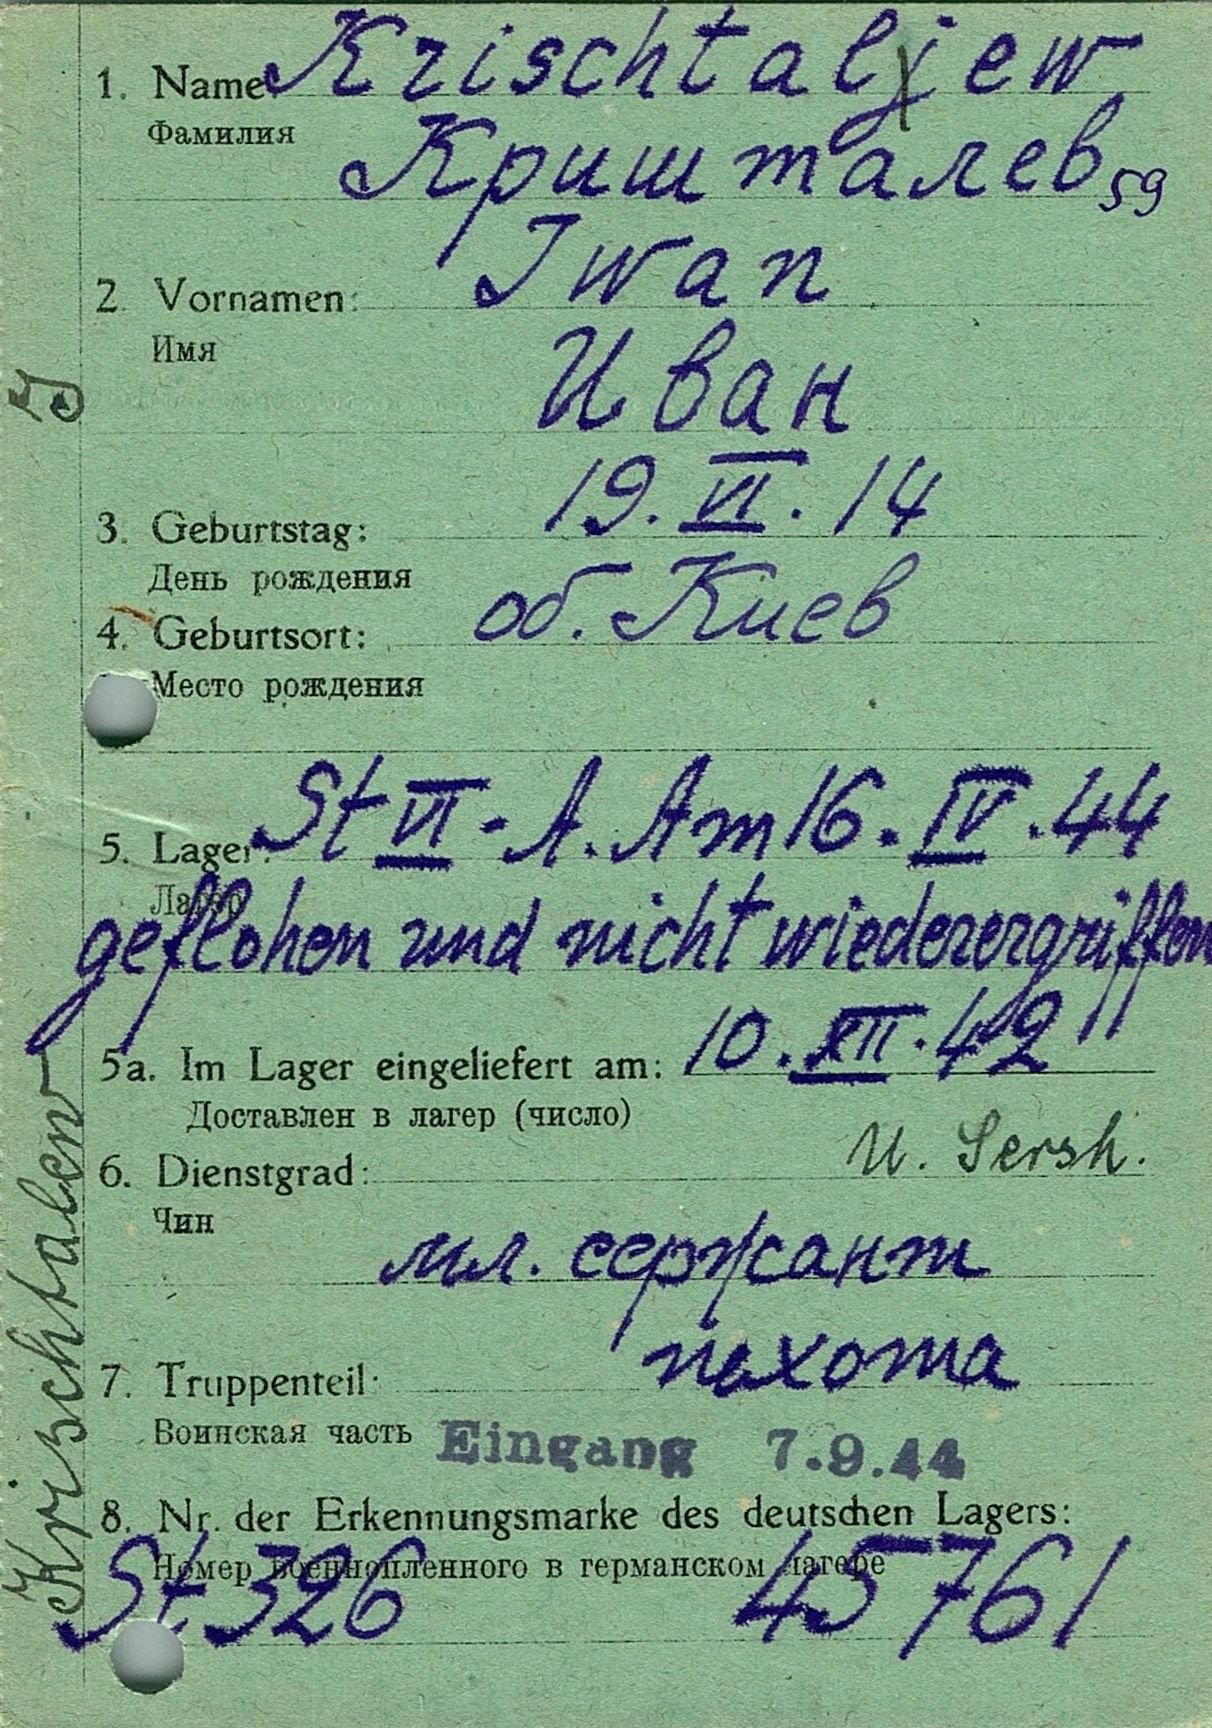 1. Name: Krischtaljew
Фамилия
Кришталев 59
2. Vornamen: Iwan
Имя
Иван
3. Geburtstag: 19.VI.14
День рождения
4. Geburtsort: об. Киев
Место рождения
5. Lager: St VI-A. Am 16.IV.44
Лагер
geflohen und nicht wiederergriffen
5a. Im Lager eingeliefert am: 10.XII.42
Доставлен в лагер (число)
6. Dienstgrad: U. Sersh.
Чин
мл. сержант
7. Truppenteil: пехота
Воинская часть Eingang 7.9.44
8. Nr. der Erkennungsmarke des deutschen Lagers:
Номер военнопленного в германском лагере
St 326 45761
Krischtalew